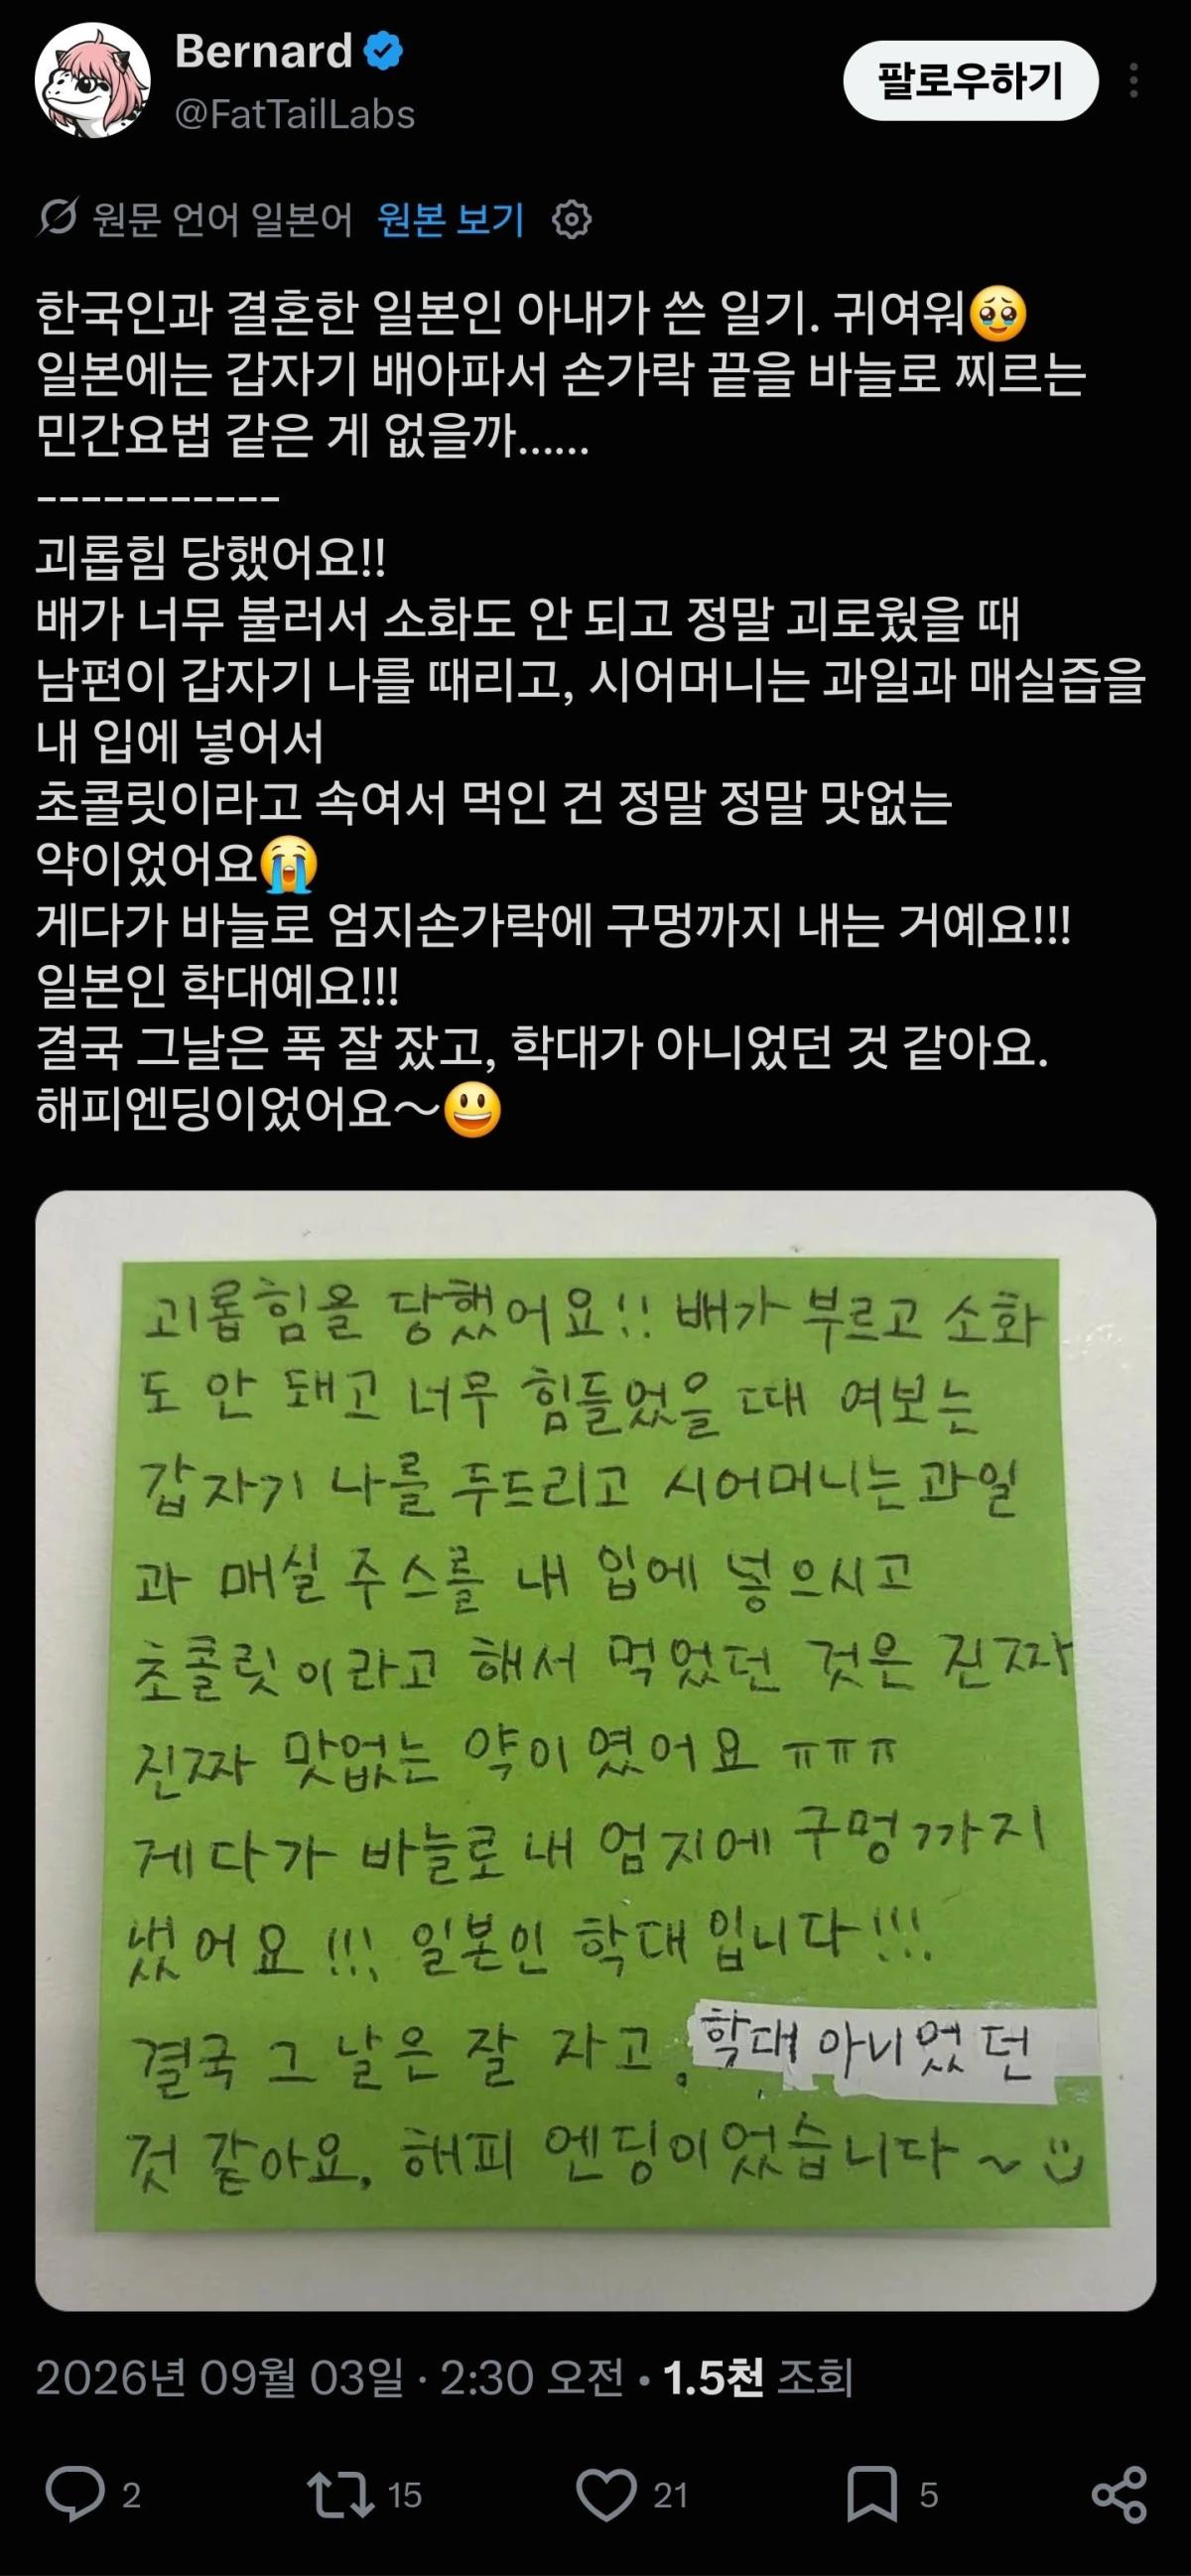 Bernard
@FatTailLabs
팔로우하기
원문 언어 일본어 원본 보기
한국인과 결혼한 일본인 아내가 쓴 일기. 귀여워🥹
일본에는 갑자기 배아파서 손가락 끝을 바늘로 찌르는
민간요법 같은 게 없을까......
-----------
괴롭힘 당했어요!!
배가 너무 불러서 소화도 안 되고 정말 괴로웠을 때
남편이 갑자기 나를 때리고, 시어머니는 과일과 매실즙을
내 입에 넣어서
초콜릿이라고 속여서 먹인 건 정말 정말 맛없는
약이었어요😭
게다가 바늘로 엄지손가락에 구멍까지 내는 거예요!!!
일본인 학대예요!!!
결국 그날은 푹 잘 잤고, 학대가 아니었던 것 같아요.
해피엔딩이었어요～😃
괴롭힘을 당했어요!! 배가 부르고 소화
도 안 돼고 너무 힘들었을 때 여보는
갑자기 나를 두드리고 시어머니는 과일
과 매실 주스를 내 입에 넣으시고
초콜릿이라고 해서 먹었던 것은 진짜
진짜 맛없는 약이였어요 ㅠㅠㅠ
게다가 바늘로 내 엄지에 구멍까지
냈어요!!! 일본인 학대입니다!!!
결국 그 날은 잘 자고, 학대 아니었던
것 같아요. 해피 엔딩이었습니다~
2026년 09월 03일 · 2:30 오전 · 1.5천 조회
2 15 21 5